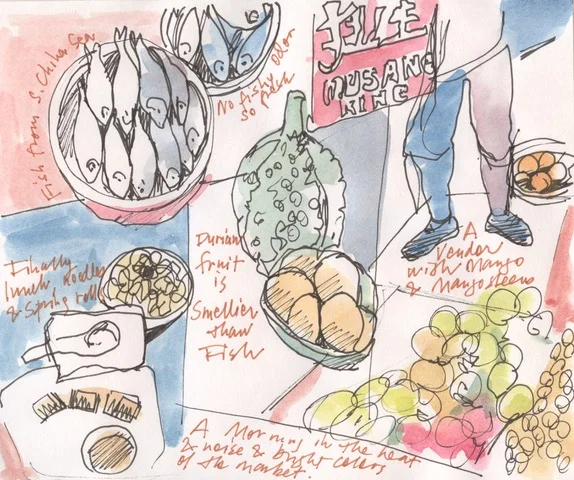 Fish from S. China Sea
No fishy odor
so fresh
MUSANG
KING
A
Vender
with Mango
& Mangosteens
Durian
fruit
is
Smellier
than
Fish
Finally
lunch, noodles
& Spring rolls
A Morning in the heat
& noise & bright colors
of the market.